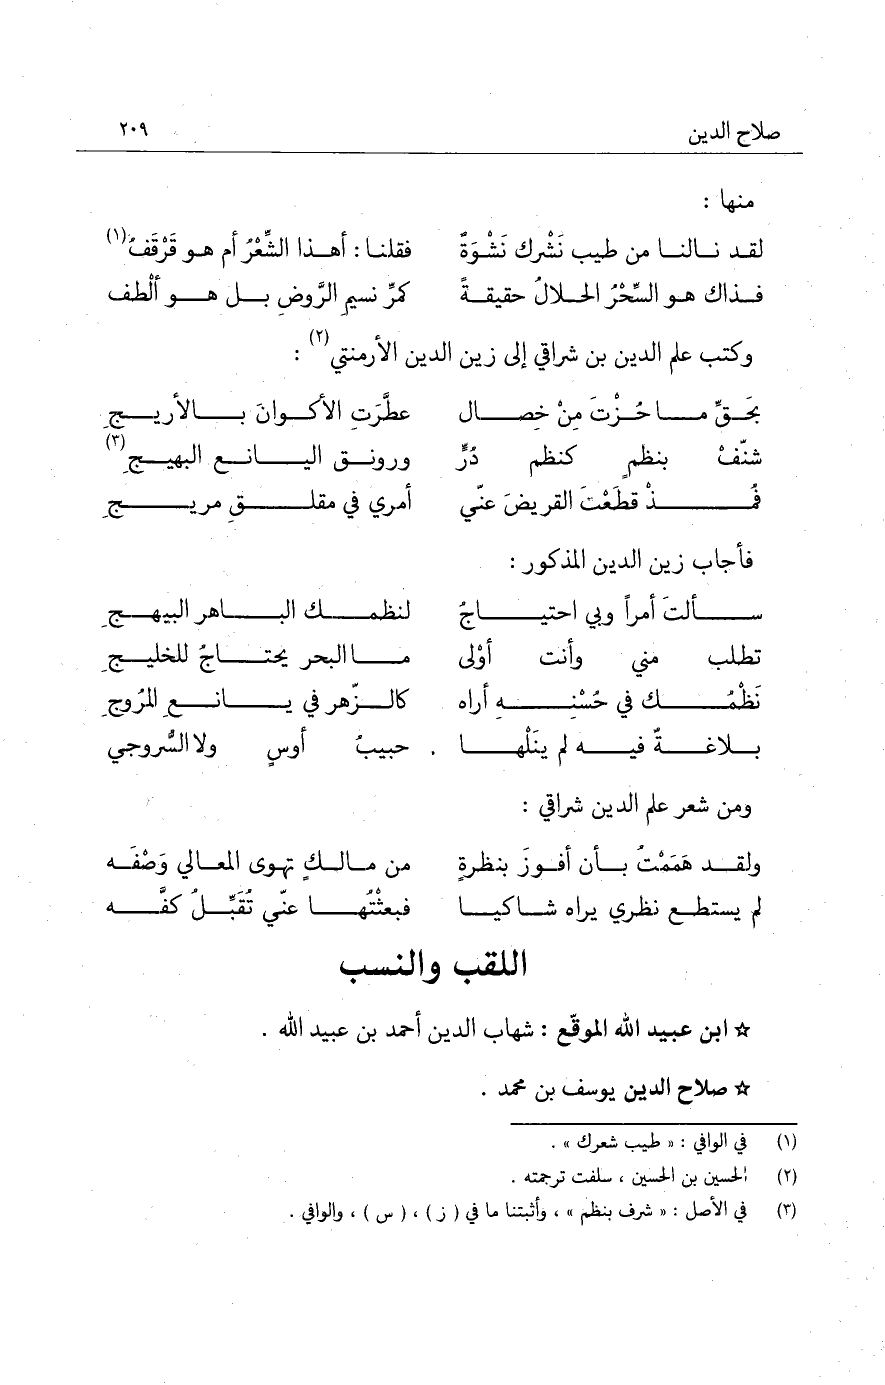 صلاح الدين ٢٠٩
منها :
لقد نالنا من طيب نَشْرك نَشْوَةٌ فقلنا : أهذا الشِّعْرُ أم هو قَرْقَفُ(١)
فذاك هو السِّحْرُ الحلالُ حقيقةً كمرِّ نسيم الرَّوضِ بل هو ألْطف
وكتب علم الدين بن شراقي إلى زين الدين الأرمنتي(٢) :
بحَقِّ ما حُزْتَ مِنْ خصال عطَّرَتِ الأكوانَ بالأريجِ
شنِّفْ بنظمٍ كنظم دُرٍّ ورونق اليانع البهيجِ(٣)
فُذْ قطَعْتَ القريضَ عنّي أمري في مقلقٍ مريجِ
فأجاب زين الدين المذكور :
سألتَ أمراً وبي احتياجُ لنظمك الباهر البهيجِ
تطلب مني وأنت أوْلى ما البحر يحتاجُ للخليجِ
نَظْمُك في حُسْنِهِ أراه كالزّهر في يانعِ المُروجِ
بلاغةٌ فيه لم ينَلْها حبيبُ أوسٍ ولا السَّروجي
ومن شعر علم الدين شراقي :
ولقد هَمَمْتُ بأن أفوزَ بنظرةٍ من مالكٍ تهوى المعالي وَصْفَه
لم يستطع نظري يراه شاكيا فبعثْتُها عنّي تُقَبِّلُ كفَّه
اللقب والنسب
☆ ابن عبيد الله الموقّع : شهاب الدين أحمد بن عبيد الله .
☆ صلاح الدين يوسف بن محمد .
(١) في الوافي : « طيب شعرك » .
(٢) الحسين بن الحسين ، سلفت ترجمته .
(٣) في الأصل : « شرف بنظم » ، وأثبتنا ما في ( ز ) ، ( س ) ، والوافي .